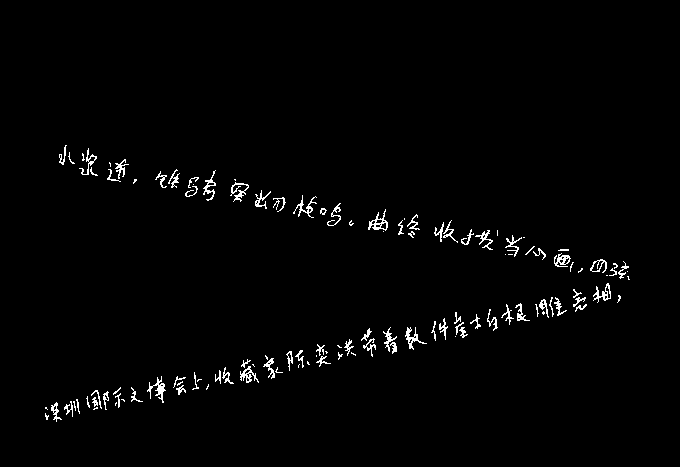 水浆迸，铁骑突出刀枪鸣。曲终收拨当心画，四弦
深圳国际文博会上，收藏家陈奕洪带着数件崖柏根雕亮相，